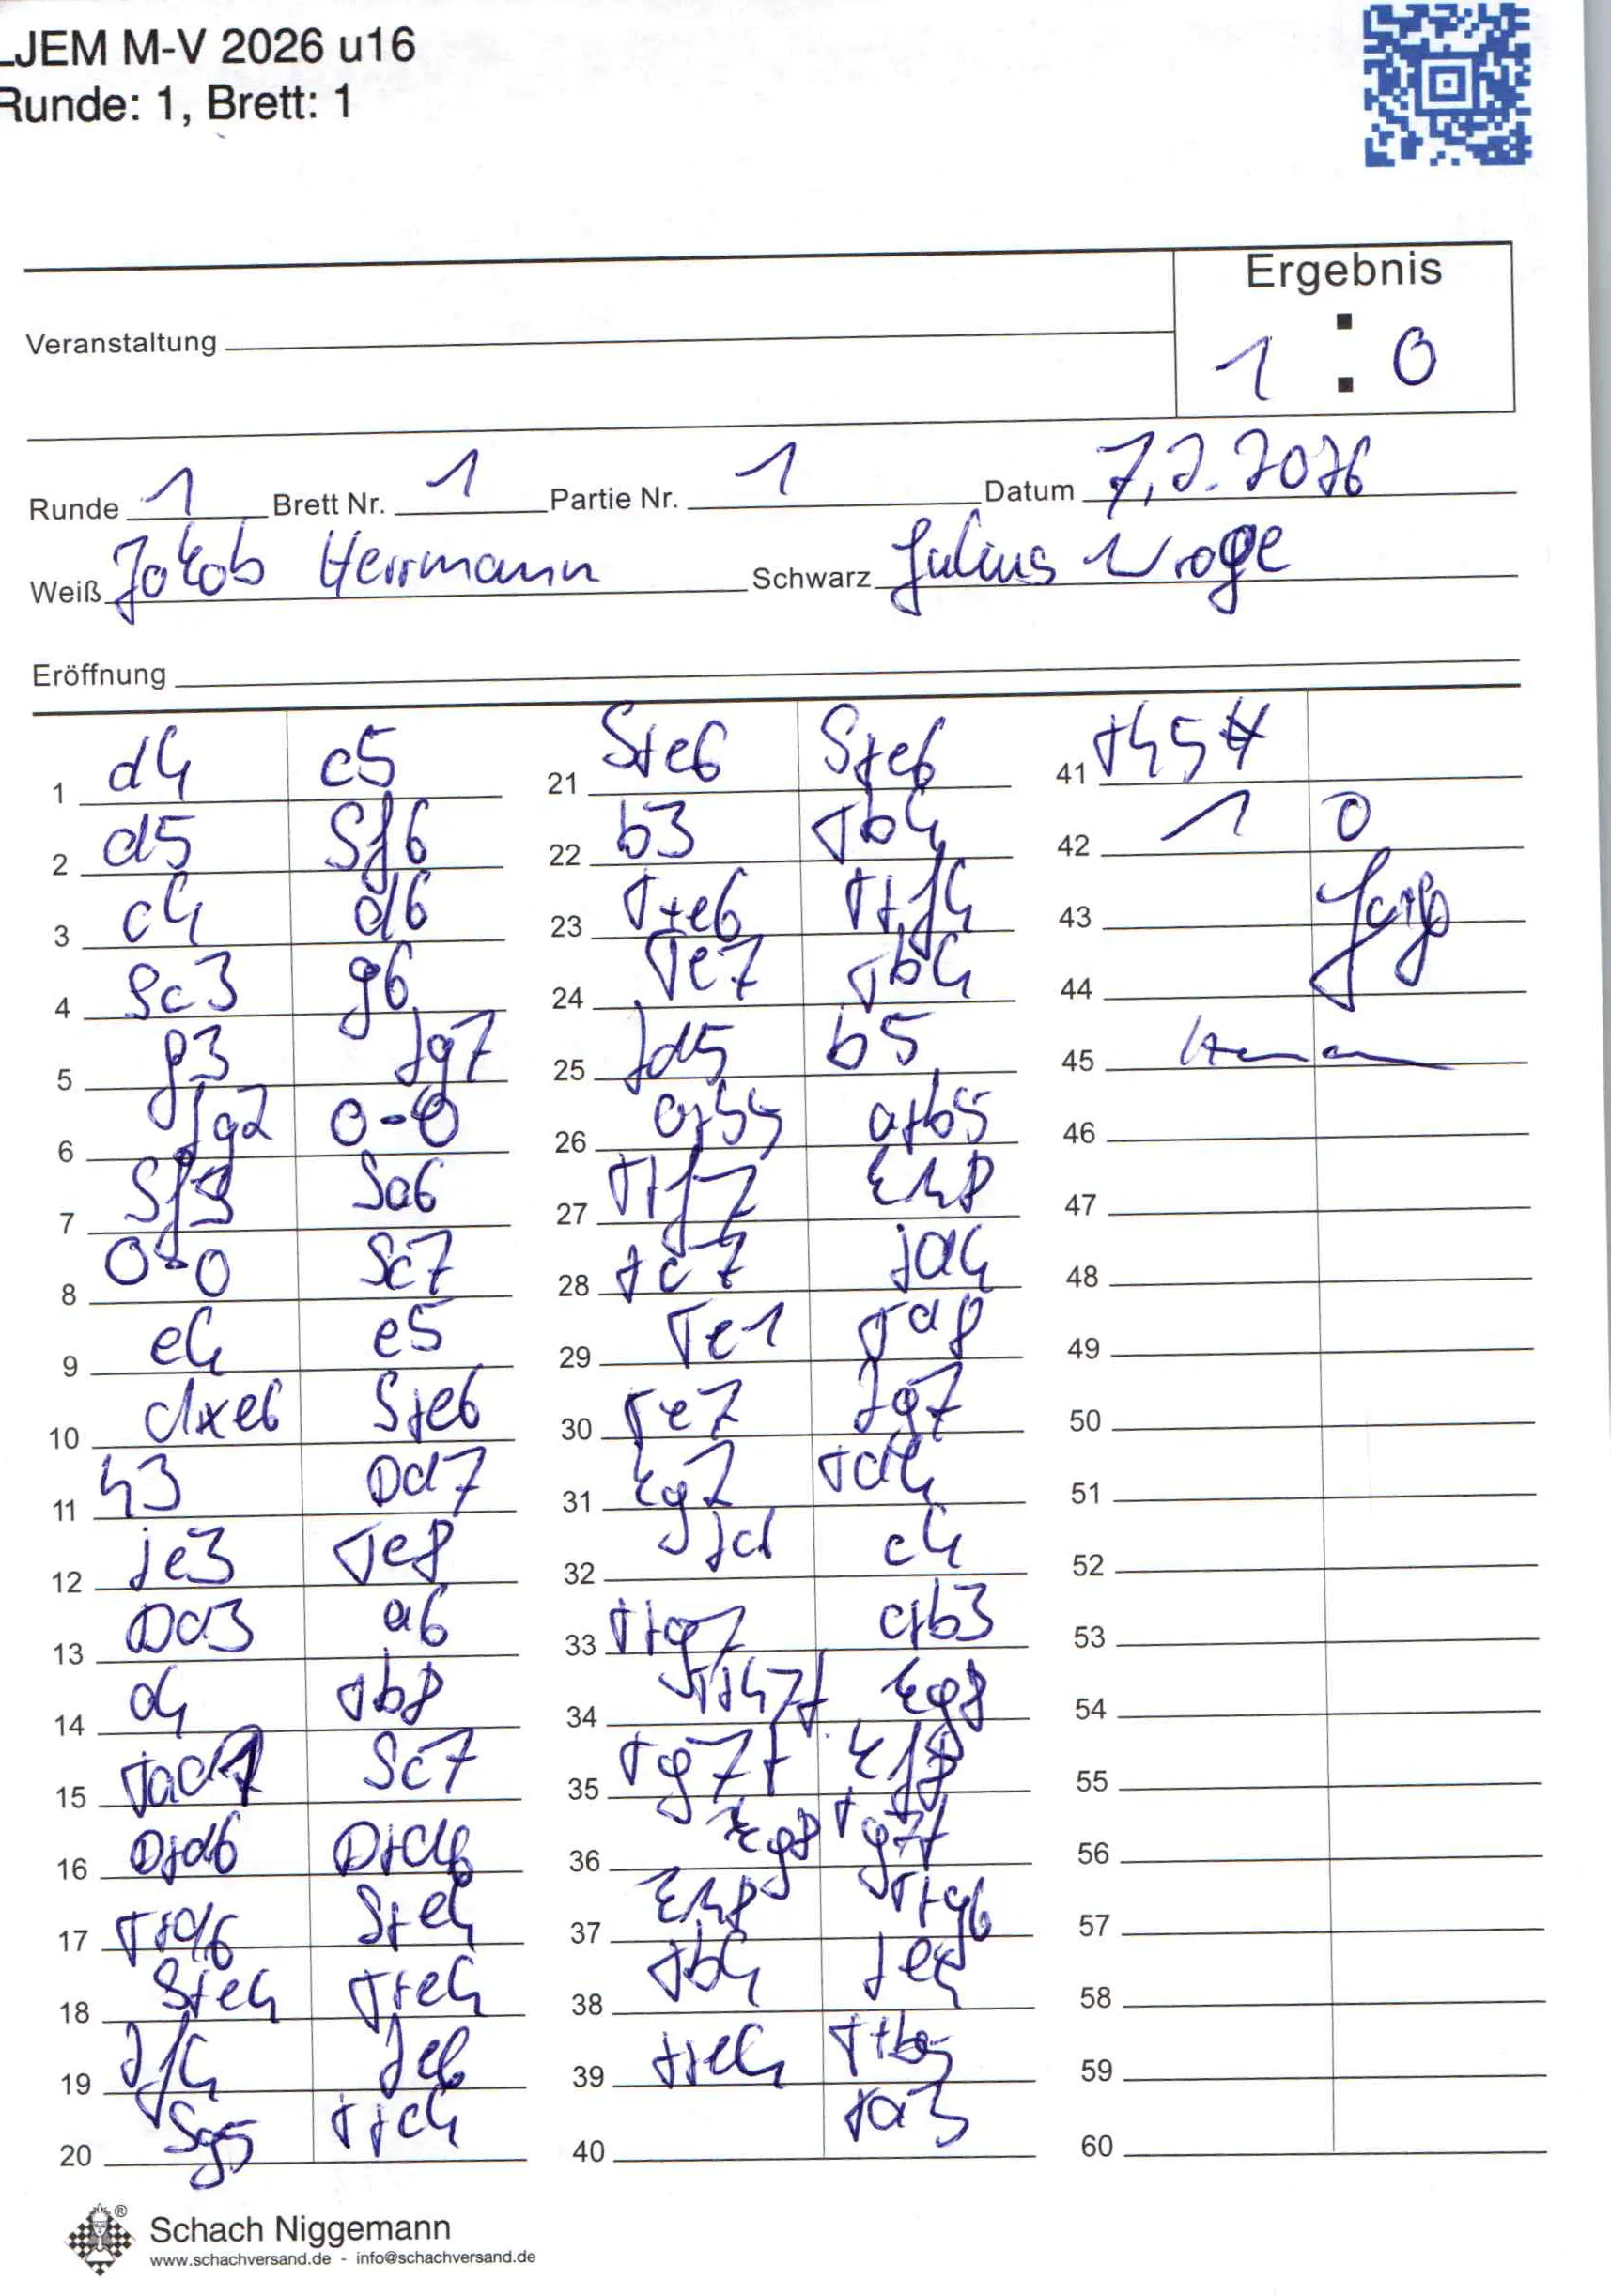 LJEM M-V 2026 u16
Runde: 1, Brett: 1
Ergebnis
Veranstaltung 1 : 0
Runde 1 Brett Nr. 1 Partie Nr. 1 Datum 7.2.2026
Weiß Jakob Herrmann Schwarz Julius
Eröffnung
1 d4 c5
2 d5 Sf6
3 c4 d6
4 Sc3 g6
5 g3 Jg7
6 Jg2 0-0
7 Sf3 Sa6
8 0-0 Sc7
9 e4 e5
10 dxe6 Sxe6
11 h3 Dd7
12 Je3 Te8
13 Dd3 a6
14 a4 Tb8
15 Tad1 Sc7
16 Dxd6 Dxd6
17 Txd6 Sxe4
18 Sxe4 Txe4
19 Jf4 Je6
20 Sg5 Txc4
21 Sxe6 Sxe6
22 b3 Tb4
23 Txe6 Txf4
24 Te7 Tb4
25 Jd5 b5
26 axb5 axb5
27 Txf7 Kh8
28 Tc7 Ja4
29 Te1 Ta8
30 Te7 Jg7
31 Kg2 Td4
32 c4
33 Txg7 cxb3
34 Txh7+ Kg8
35 Tg7+ Kf8
36 Kg8 Tg7+
37 Kh8 Txg6
38 Tb4 Je4
39 Txe4 Txb5
40 Ta3
41 Th5#
42 1 0
43
44
45
46
47
48
49
50
51
52
53
54
55
56
57
58
59
60
®
Schach Niggemann
www.schachversand.de - info@schachversand.de